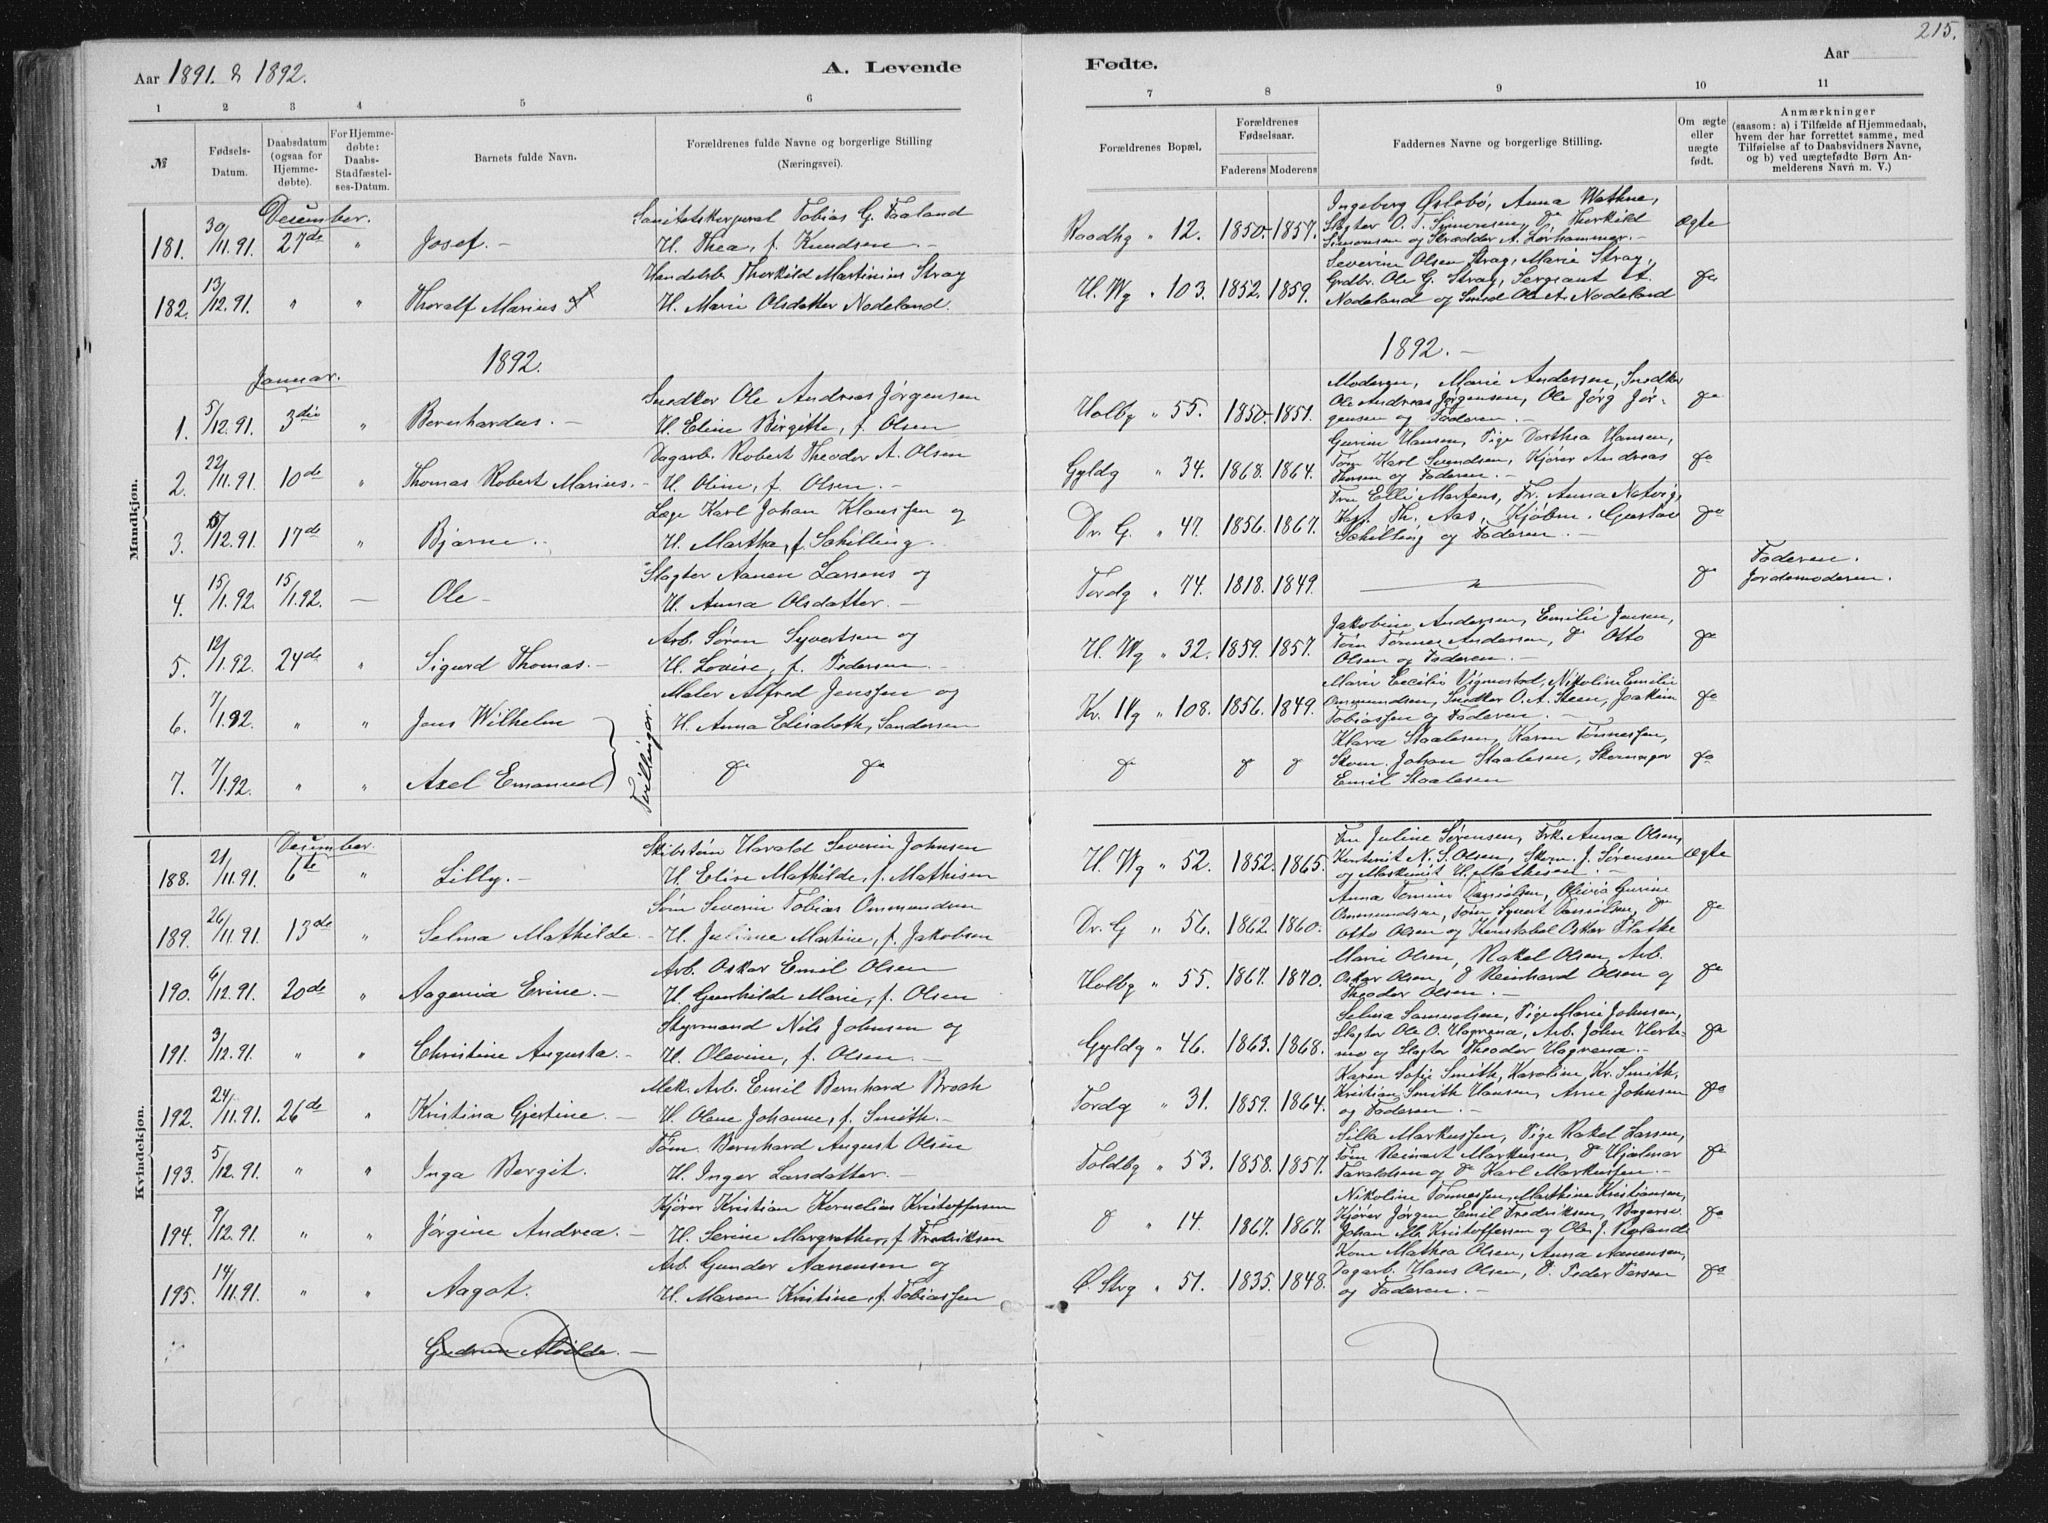 215.
Aar 1891. & 1892.
A. Levende
Fødte.
Aar
1 2 3 4 5 6 7 8 9 10 11
№
Fødsels-
Datum.
Daabsdatum
(ogsaa for
Hjemme-
døbte).
For Hjemme-
døbte:
Daabs-
Stadfæstel-
ses-Datum.
Barnets fulde Navn.
Forældrenes fulde Navne og borgerlige Stilling
(Næringsvei).
Forældrenes Bopæl.
Forældrenes
Fødselsaar.
Faderens Moderens
Faddernes Navne og borgerlige Stilling.
Om ægte
eller
uægte
født.
Anmærkninger
(saasom: a) i Tilfælde af Hjemmedaab,
hvem der har forrettet samme, med
Tilføielse af to Daabsvidners Navne,
og b) ved uægtefødte Børn An-
melderens Navn m. V.)
Mandkjøn.
December.
181. 30/11.91. 27de " Josef. -
Sanitetskorporal Tobias G. Faaland
H. Thea, f. Knudsen. -
Raadhg " 12. 1850- 1857.
Ingeborg Oslebö, Anna Wathne,
Slagter O. T. Simonsen, Do Thorkild
Simonsen og Skrædder A. Lørhammer. -
Ægte
182. 13/12.91. " " Thoralf Marius
Handelsb. Thorkild Martinius Stray
H. Marie Olsdatter Nodeland.
H. Wg " 103. 1852. 1859.
Severine Olsen Stray, Marie Stray,
Grdbr. Ole G. Stray, Sergeant
Nodeland og Smed Ole A. Nodeland
Do
1892.
1892. -
Januar.
1. 5/12.91. 3die Bernhardus. -
Snedker Ole Andreas Jørgensen
H. Eline Birgitte, f. Olsen
Holbg " 55. 1850- 1851.
Moderen, Marie Andersen, Snedker
Ole Andreas Jørgensen, Ole Jørg Jør-
gensen og Faderen. -
Do
2. 22/11.91. 10de " Thomas Robert Marius. -
Dagarb. Robert Theodor A. Olsen
H. Oline, f. Olsen. -
Gyldg " 34. 1868. 1864.
Gurine Hansen, Pige Dorthea Hansen,
Tøm Karl Svendsen, Kjører Andreas
Hansen og Faderen. -
Do
3. /12.91. 17de " Bjarne. -
Læge Karl Johan Klaussen og
H. Martha, f. Schilling.
Dr. G. " 47. 1856. 1867.
Fru Elli Martens, Fr. Anna Natvig,
Kapt. Th. Aas, Kjøbm. Gustav
Schilling og Faderen. -
Do
4. 15/1.92. 15/1.92. - Ole -
Slagter Aanen Larsens og
H. Anna Olsdatter. -
Tordg " 74. 1818. 1849.
Do
Faderen.
Jordemoderen.
5. 12/1.92. 24de " Sigurd Thomas. -
Arb. Søren Syvertsen og
H. Lovise, f. Pedersen. -
H. Wg " 32. 1859. 1857.
Jakobine Andersen, Emilie Jensen,
Tøm Tønnes Andersen, Do Otto
Olsen og Faderen. -
Do
6. 7/1.92. " " Jens Wilhelm
Tvillinger.
Maler Alfred Jenssen og
H. Anna Elisabeth, Sandersen
Kr. IVg " 108. 1856. 1849.
Marie Cecilie Vigmostad, Nikoline Emilie
Ommundsen, Snedker O. A. Steen, Joakim
Tobiassen og Faderen. -
Do
7. 7/1.92. " " Axel Emanuel
Do Do
Do Do Do
Klara Staalesen, Karen Tønnessen,
Skom. Johan Staalesen, Skomager
Emil Staalesen
Do
Kvindekjøn.
December.
188. 21/11.91. 6te " Lilly. -
Skibstøm Harald Severin Johnsen
H. Elise Mathilde, f. Mathisen
H. Wg " 52. 1852. 1865.
Fru Juline Sørensen, Frk. Anna Olsen,
N. S. Olsen, Skom. J. Sørensen
og Maskinist H. Mathisen. -
Ægte
189. 26/11.91. 13de " Selma Mathilde. -
Søm Severin Tobias Ommundsen
H. Juliane Martine, f. Jakobsen
Dr. G " 56. 1862. 1860.
Anna Tomine Danielsen, Olivia Gurine
Ommundsen, Tøm Syvert Danielsen, Do
Otto Olsen og Konstabel Oskar Flatke
Do
190. 6/12.91. 20de " Aagenia Erine. -
Arb. Oskar Emil Olsen
H. Gunhilde Marie, f. Olsen
Holbg " 55. 1867. 1870.
Marie Olsen, Rakel Olsen, Arb.
Oskar Olsen, Do Reinhard Olsen og
Theodor Olsen. -
Do
191. 3/12.91. " " Christine Augusta. -
Styrmand Nils Johnsen og
H. Olevine, f. Olsen. -
Gyldg " 46. 1863. 1868.
Selma Samuelsen, Pige Marie Johnsen,
Slagter Ole O. Hagvena, Arb. John
og Slagter Theodor Hagvena. -
Do
192. 24/11.91. 26de " Kristina Gjertine. -
Mek. Arb. Emil Bernhard Broch
H. Olene Johanne, f. Smith. -
Tordg " 31. 1859. 1864.
Karen Sofie Smith, Karoline Kr. Smith,
Kristian Smith Hansen, Arne Johnsen
og Faderen. -
Do
193. 5/12.91. " " Inga Bergit.
Tøm. Bernhard August Olsen
H. Inger Larsdatter. -
Toldbg " 53. 1858. 1857.
Silla Markussen, Pige Rakel Larsen,
Tøm Reinert Markusen, Do Hjalmar
Taraldsen og Do Karl Markussen. -
Do
194. 9/12.91. " " Jørgine Andrea. -
Kjører Kristian Kornelius Kristoffersen
H. Serine Margrethe, f. Fredriksen
Do " 14. 1867. 1867.
Nikoline Tønnessen, Mathine Kristiansen,
Kjører Jørgen Emil Fredriksen, Bagersv.
Johan M. Kristoffersen og Ole J. Vigeland.
Do
195. 14/11.91. " " Aagot. -
Arb. Gunder Aanensen og
H. Maren Kristine, f. Tobiassen
Ø. Strg " 51. 1835. 1848.
Kone Mathea Olsen, Anna Aanensen,
Dagarb. Hans Olsen, Do Peder Persen
og Faderen. -
Do
Gudrun Alvilde. -